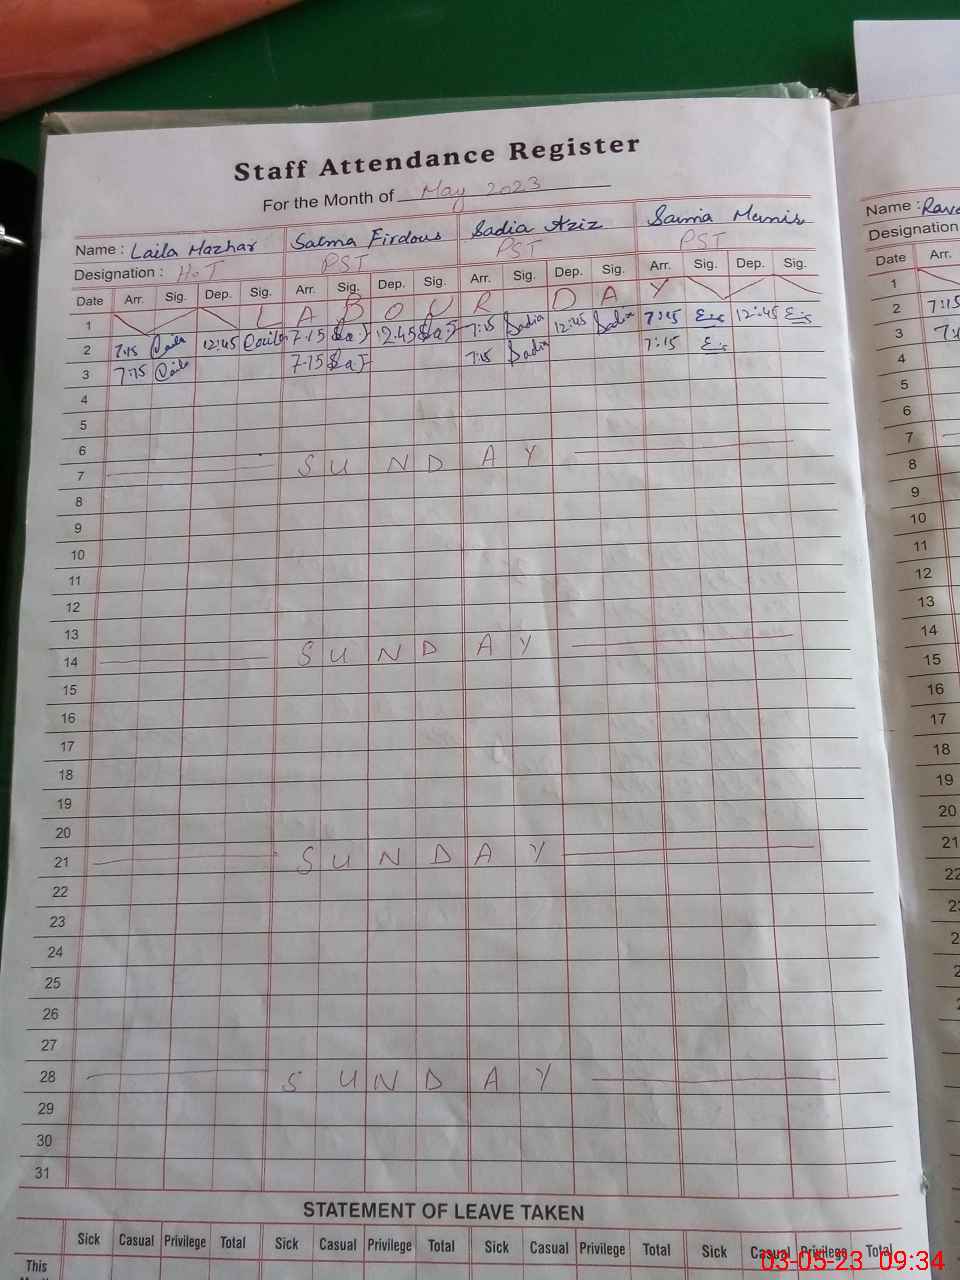 Staff Attendance Register
For the Month of May 2023
Name : Laila Mazhar Salma Firdous Sadia Aziz Saima Munis
Designation : H.T PST PST PST
Date Arr. Sig. Dep. Sig. Arr. Sig. Dep. Sig. Arr. Sig. Dep. Sig. Arr. Sig. Dep. Sig.
1 LABOUR DAY
2 7:15 Laila 12:45 Laila 7:15 Sa.F 12:45 Sa.F 7:15 Sadia 12:45 Sadia 7:15 12:45
3 7:15 Laila 7:15 Sa.F 7:15 Sadia 7:15
4
5
6
7 SUNDAY
8
9
10
11
12
13
14 SUNDAY
15
16
17
18
19
20
21 SUNDAY
22
23
24
25
26
27
28 SUNDAY
29
30
31
STATEMENT OF LEAVE TAKEN
Sick Casual Privilege Total Sick Casual Privilege Total Sick Casual Privilege Total Sick Casual Privilege Total
This
Name :
Designation
Date Arr.
1
2 7:15
3
4
5
6
7
8
9
10
11
12
13
14
15
16
17
18
19
20
21
22
03-05-23 09:34